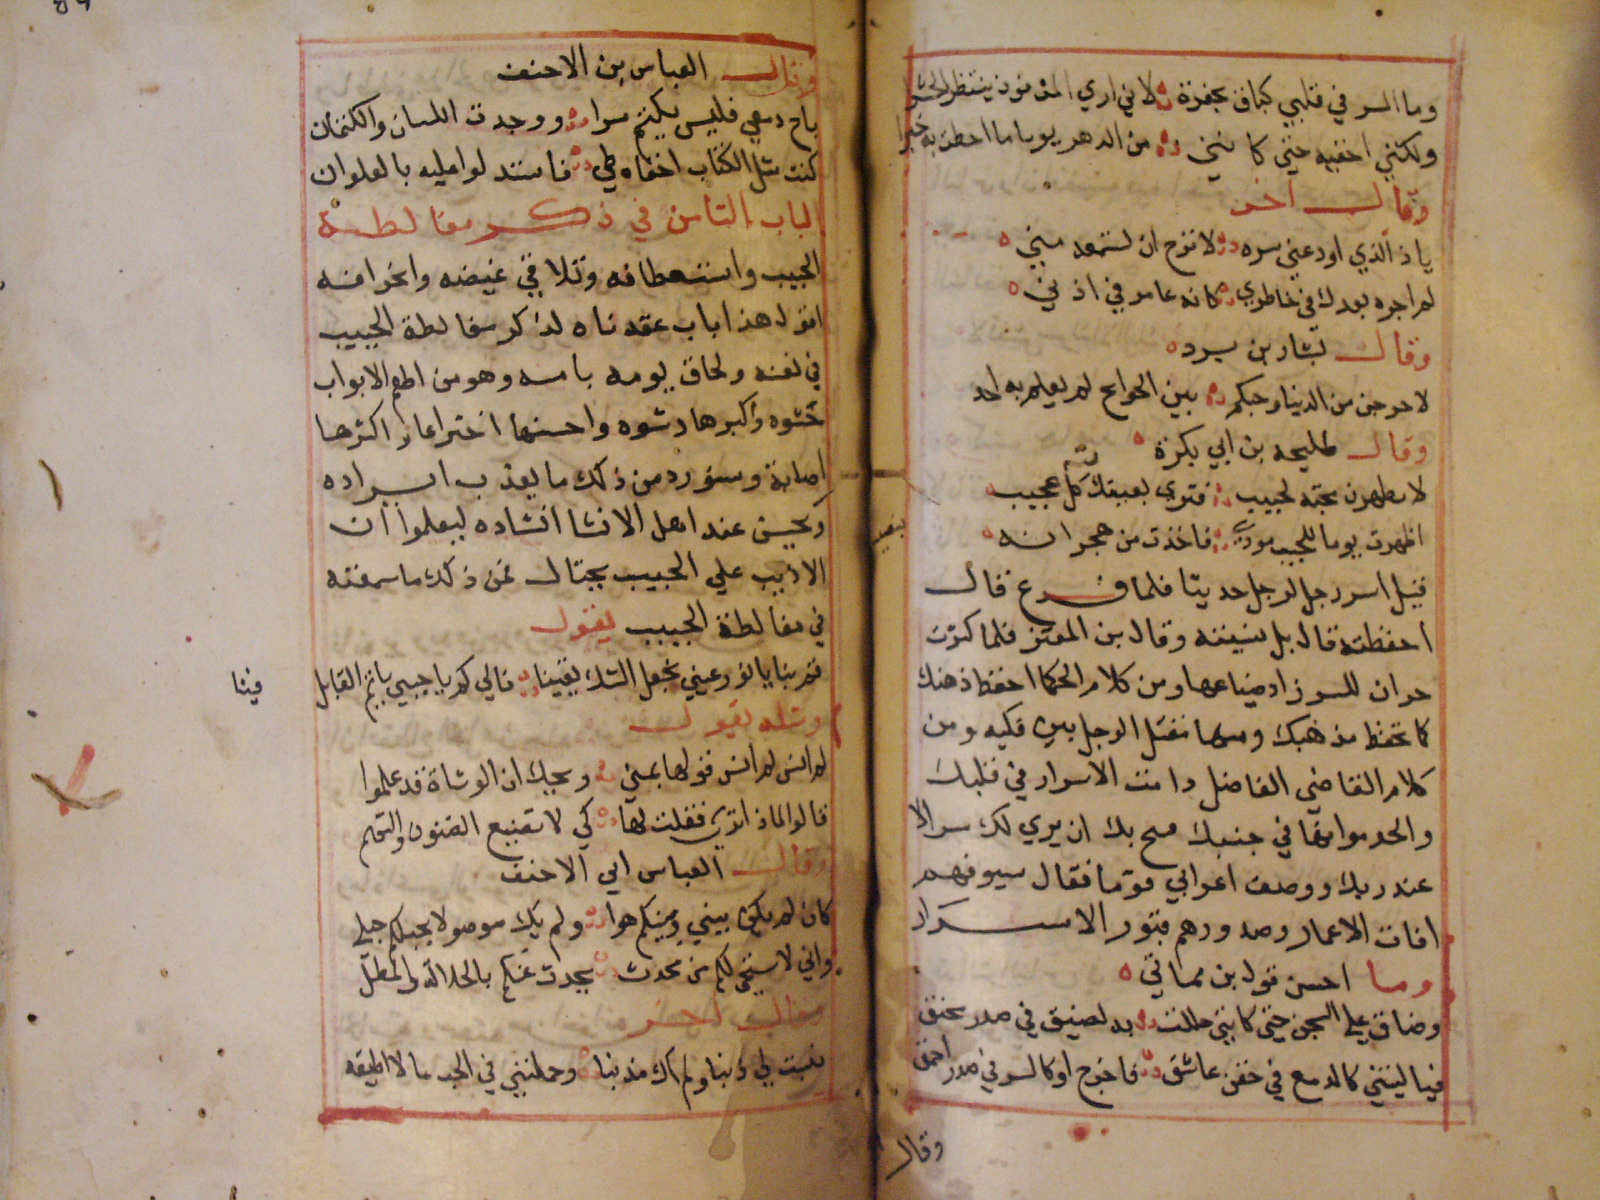 وما السر في قلبي كباق بحفرة لاني اري المدفون ينتظر الحشرا
ولكنني اخفيه حتى كانني من الدهر يوما ما احطت به خبرا
وقال اخر
ياذ الذي اودعني سره لا ترج ان تسمعه مني
لم اجره بعدك في خاطري كانه ما مر في اذني
وقال بشار بن برد
لاخرجن من الدنيا وحبكم بين الجوانح لم يعلم به احد
وقال طليحه بن ابي بكرة
لا تظهرن محبة لحبيب فتري بعينك كل عجيب
اظهرت يوما للحبيب مودتي فاخذت من هجرانه
قيل اسر رجل لرجل حديثا فلما فرغ قال
احفظته قال بل نسيته وقال بن المعتز فلما كثرت
خزان السر زاد ضياعها ومن كلام الحكما احفظ ذهنك
كما تحفظ مذهبك ومنها مقتل الرجل بين فكيه ومن
كلام القاضي الفاضل دامنت الاسرار في قلبك
والحد مواسها في جنبك مح بك ان يري لك سر الا
عند ربك ووصف اعرابي قوما فقال سيوفهم
افات الاعمار وصدورهم قبور الاسرار
وما احسن قول بن مماتي
وضاق علي السجن حتى كانني حللت بد لضيق في صدر محنق
فيا ليتني كالدمع في جفن عاشق فاخرج او كالسر في صدر احمق
وقال
وقال العباس بن الاحنف
باح دمعي فليس يكتم سرا ووجدت اللسان والكتمان
كنت مثل الكتاب اخفاه طي فاستدلوا عليه بالعلوان
الباب الثامن في ذكر مغالطة
الحبيب واستعطافه وتلافي غيضه وانحرافه
اقول هذا باب عقدناه لذكر مغالطة الحبيب
في لعنه ولحاق يومه بامسه وهو من اطبع الابواب
حشوه واكبرها رشوه واحسنها اختراعا واكثرها
اصابة وسنورد من ذلك ما يعذب ايراده
ويحسن عند اهل الانشا انشاده ليعلموا ان
الاديب علي الحبيب يحتال فمن ذلك ما سمعته
في مغالطة الحبيب يقول
قم بنا يا نور عيني نجعل الشك يقينا فالي كم يا حبيبي ياثم القايل
فينا
ومثله يقول
لم انس لم انس قولها بمني ويحك ان الوشاة قد علموا
قالوا لماذا تري فقلت لها كي لا تضيع الظنون والتهم
وقال العباس ابي الاحنف
كان لم يكن بيني وبينكم هوا ولم يك موصولا بحبكم حبلي
واني لاستحي لكم من محدث يحدث عنكم بالملالة والمطل
وقال اخر
نسبت لي ذنبا ولم اك مذنبا وحملتني في الحب ما لا اطيقه